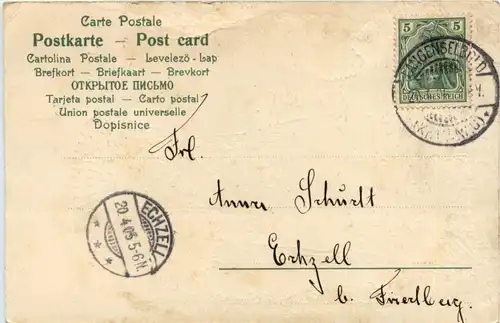 Carte Postale
Postkarte – Post card
Cartolina Postale – Levelező-Lap
Brefkort – Briefkaart – Brevkort
ОТКРЫТОЕ ПИСЬМО
Tarjeta postal – Carto postal
Union postale universelle
Dopisnice
5 5
DEUTSCHES REICH
LANGENSELBOLD
Frl.
Anna Schurdt
Echzell
b. Friedberg
ECHZELL
20.4.05 5-6N.